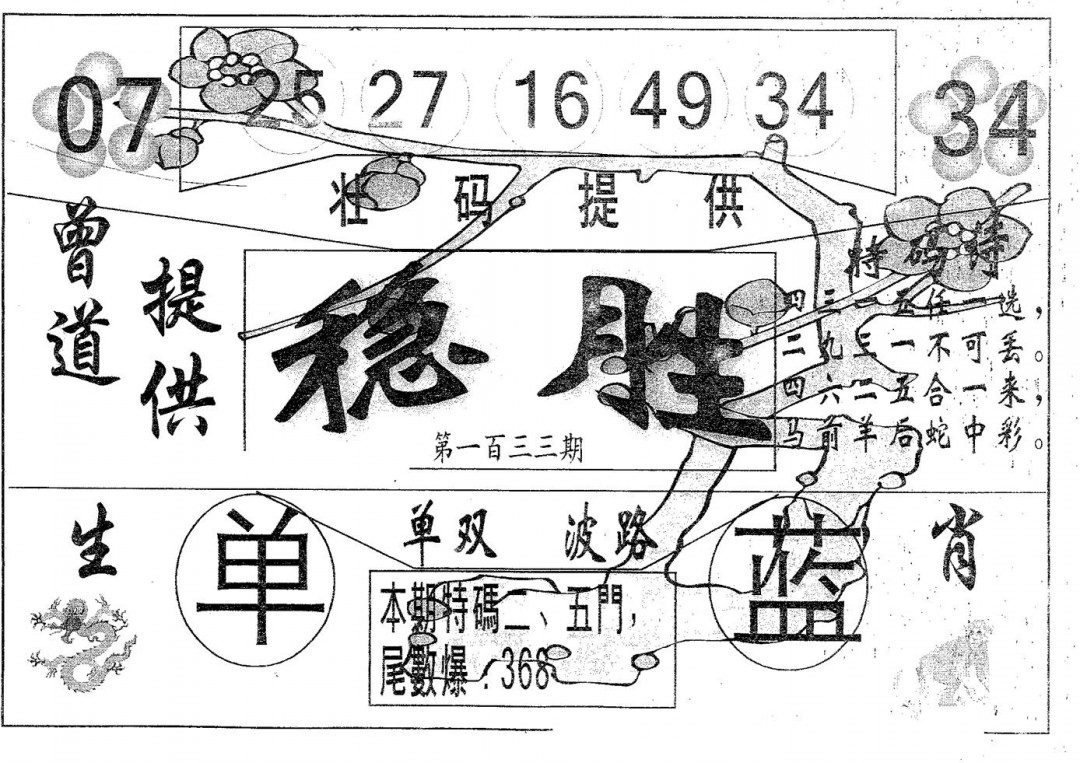 07 25 27 16 49 34 34
壮码提供
曾道
提供
稳胜
第一百三三期
特码诗
四三一五任一选，
二九三一不可丢。
四六二五合一来，
马前羊后蛇中彩。
生 单 单双 波路 蓝 肖
本期特碼二、五門，
尾數爆：368